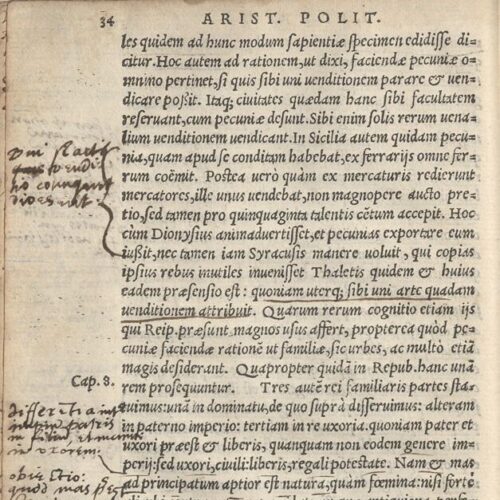 34 ARIST. POLIT.
les quidem ad hunc modum sapientiæ specimen edidisse di-
citur. Hoc autem ad rationem, ut dixi, faciendæ pecuniæ o-
mnino pertinet, si quis sibi uni uenditionem parare & uen-
dicare poßit. Itaq; ciuitates quædam hanc sibi facultatem
reseruant, cum pecuniæ desunt. Sibi enim solis rerum uena-
lium uenditionem uendicant. In Sicilia autem quidam pecu-
nia, quam apud se conditam habebat, ex ferrarijs omne fer-
rum coëmit. Postea uerò quàm ex mercaturis redierunt
mercatores, ille unus uendebat, non magnopere aucto pre-
tio, sed tamen pro quinquaginta talentis cẽtum accepit. Hoc
cùm Dionysius animaduertisset, et pecunias exportare eum
iußit, nec tamen iam Syracusis manere uoluit, qui copias
ipsius rebus inutiles inuenisset Thaletis quidem & huius
eadem præsensio est: quoniam uterq; sibi uni arte quadam
uenditionem attribuit. Quarum rerum cognitio etiam ijs
qui Reip. præsunt magnos usus afferi, propterea quòd pe-
cuniæ faciendæ rationẽ ut familiæ, sic urbes, ac multò etiã
magis desiderant. Quapropter quidã in Repub. hanc unã
rem prosequuntur. Tres autẽ rei familiaris partes sta-
Cap. 8.
uimus: una in dominatu, de quo suprà disseruimus: alteram
in paterno imperio: tertiam in re uxoria. quoniam pater et
uxori præest & liberis, quanquam non eodem genere im-
perij: sed uxori, ciuili: liberis, regali potestate. Nam & mas
ad principatum aptior est natura, quàm fœmina: nisi fortè
obiectio:
quod mas